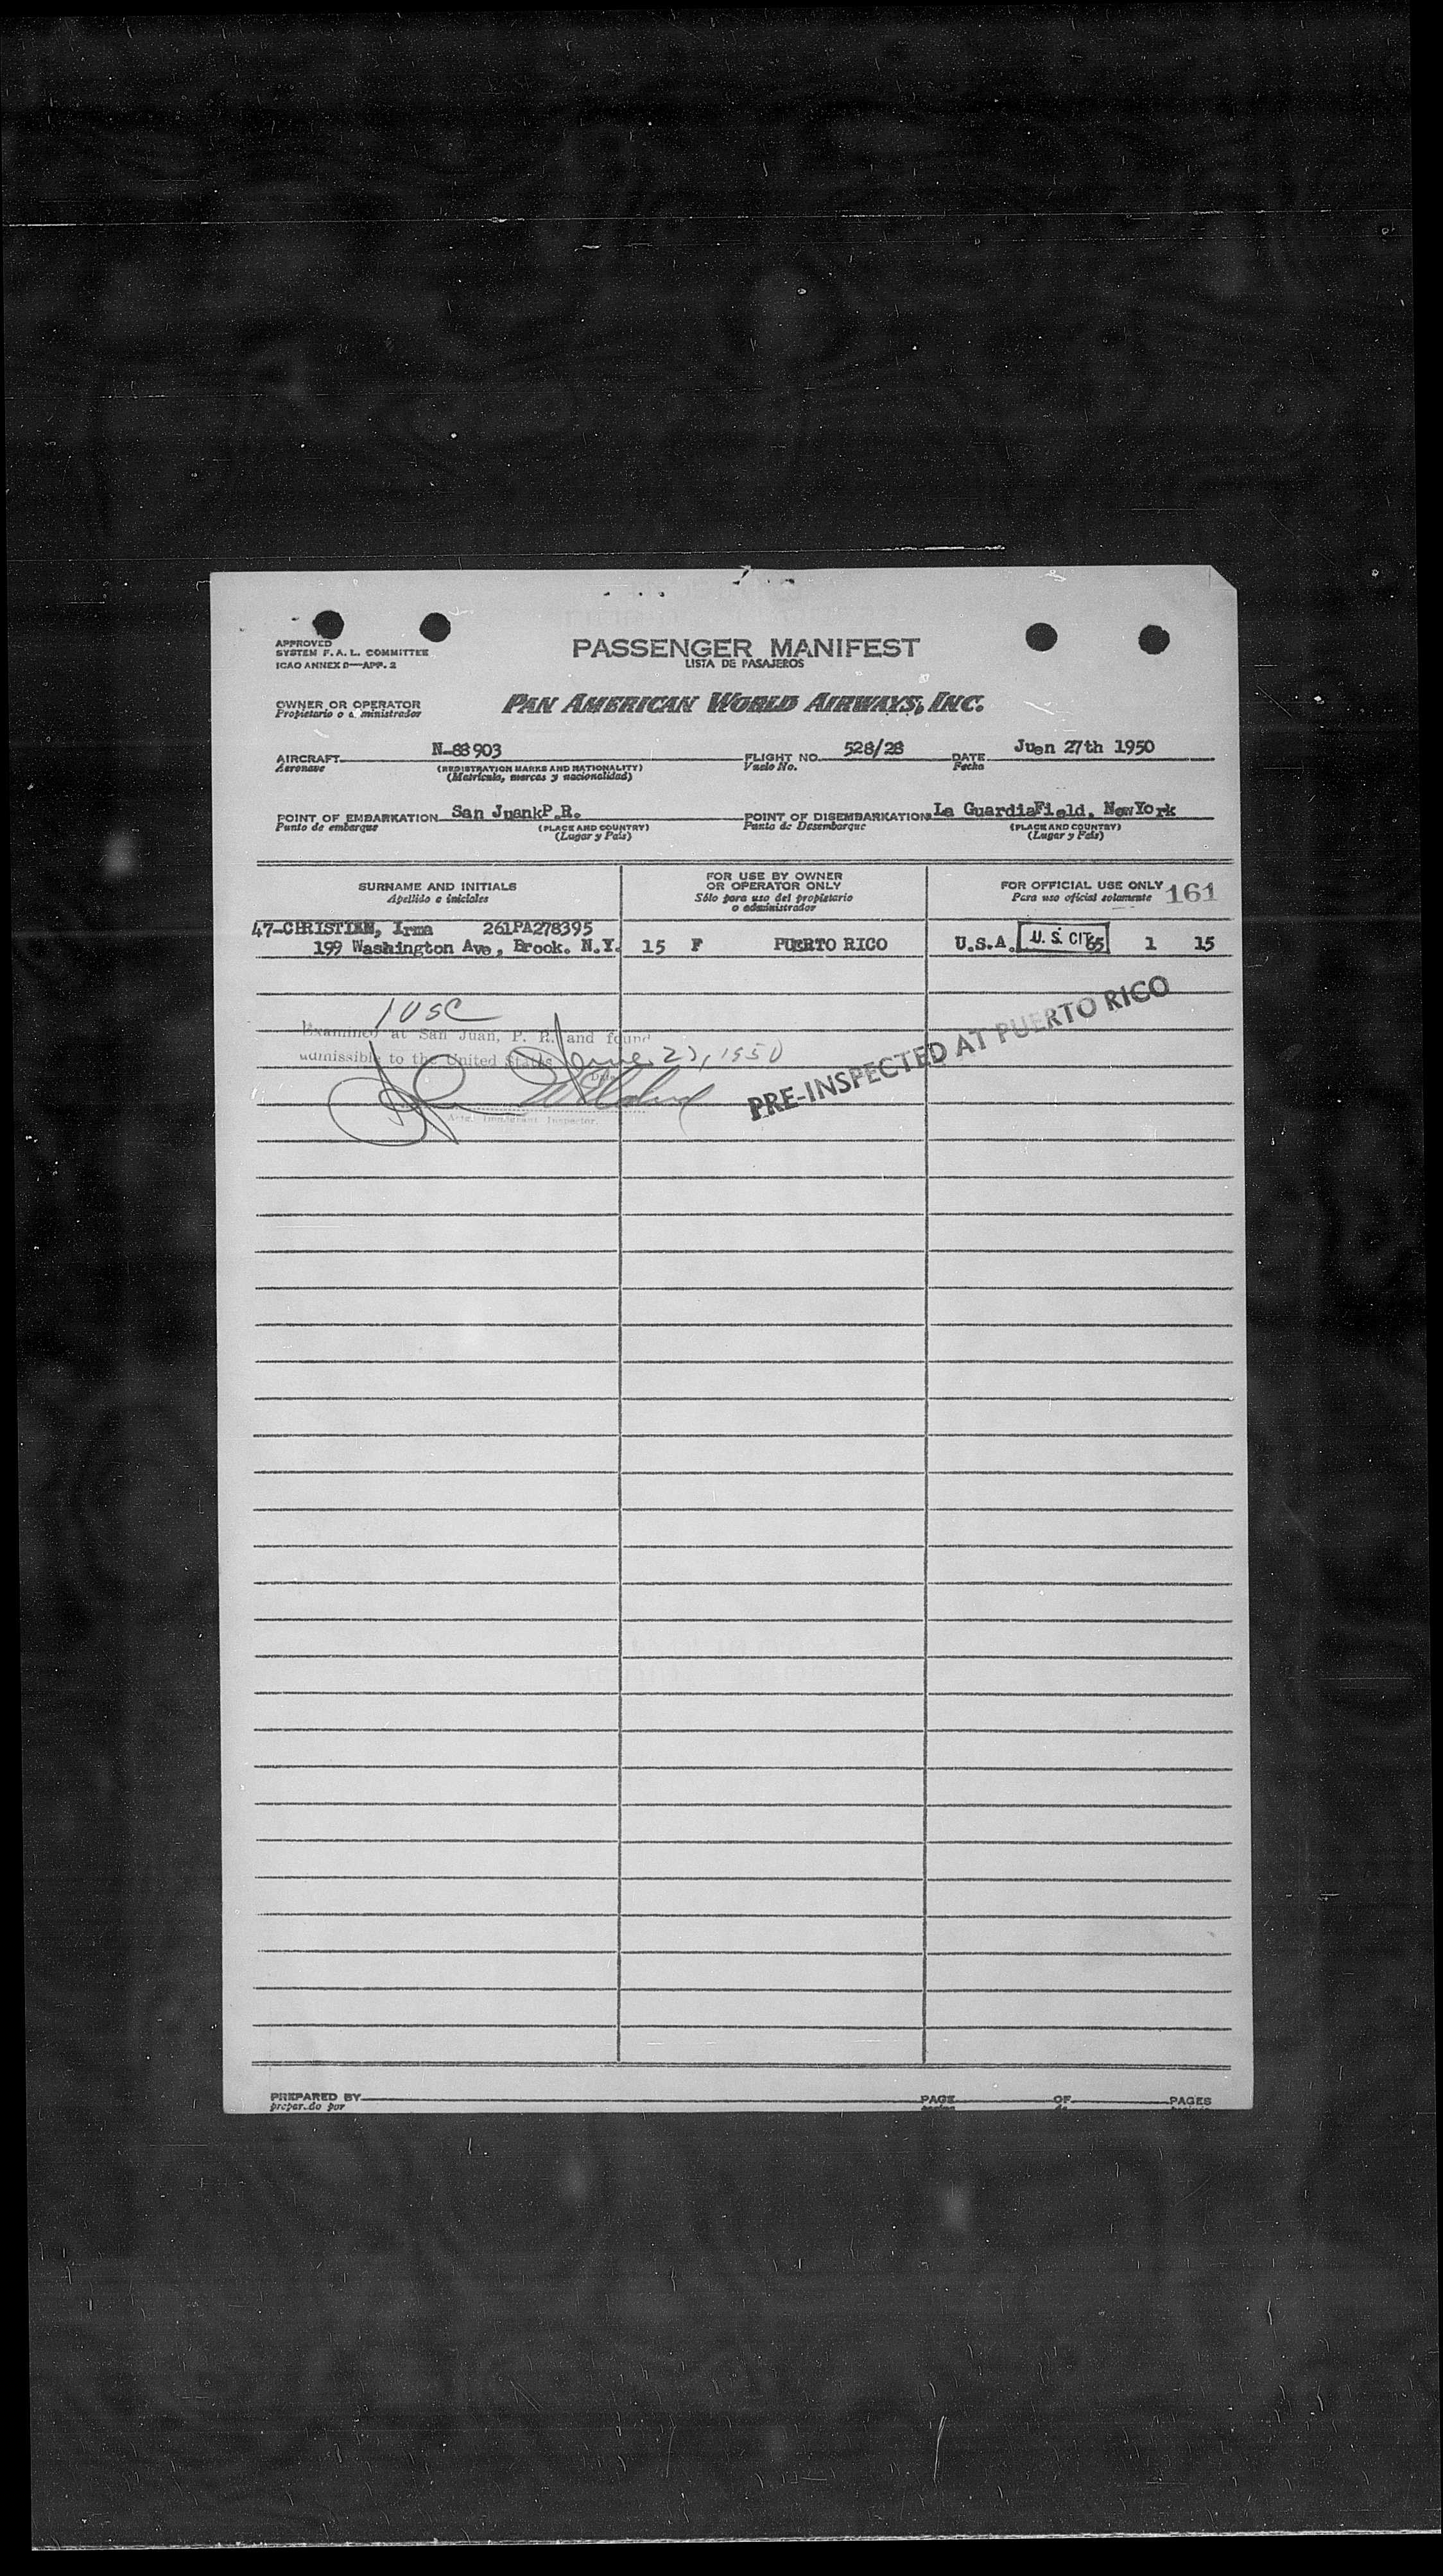 APPROVED
SYSTEM F.A.L. COMMITTEE
ICAO ANNEX 9—APP. 2
PASSENGER MANIFEST
LISTA DE PASAJEROS
OWNER OR OPERATOR
Propietario o administrador
PAN AMERICAN WORLD AIRWAYS, INC.
AIRCRAFT N-88903 FLIGHT NO. 528/28 DATE Juen 27th 1950
Aeronave (REGISTRATION MARKS AND NATIONALITY) Vuelo No. Fecha
(Matrícula, marcas y nacionalidad)
POINT OF EMBARKATION San JuankP.R. POINT OF DISEMBARKATION La GuardiaField, NewYork
Punto de embarque (PLACE AND COUNTRY) Punto de Desembarque (PLACE AND COUNTRY)
(Lugar y País) (Lugar y País)
SURNAME AND INITIALS
Apellido e iniciales
FOR USE BY OWNER
OR OPERATOR ONLY
Sólo para uso del propietario
o administrador
FOR OFFICIAL USE ONLY 161
Para uso oficial solamente
47-CHRISTIAN, Irma 261PA278395
199 Washington Ave, Brook. N.Y. 15 F PUERTO RICO U.S.A. U. S. CIT. 65 1 15
1 USC
Examined at San Juan, P. R. and found
admissible to the United States June 27, 1950
Date
Immigrant Inspector.
PRE-INSPECTED AT PUERTO RICO
PREPARED BY PAGE OF PAGES
preparado por